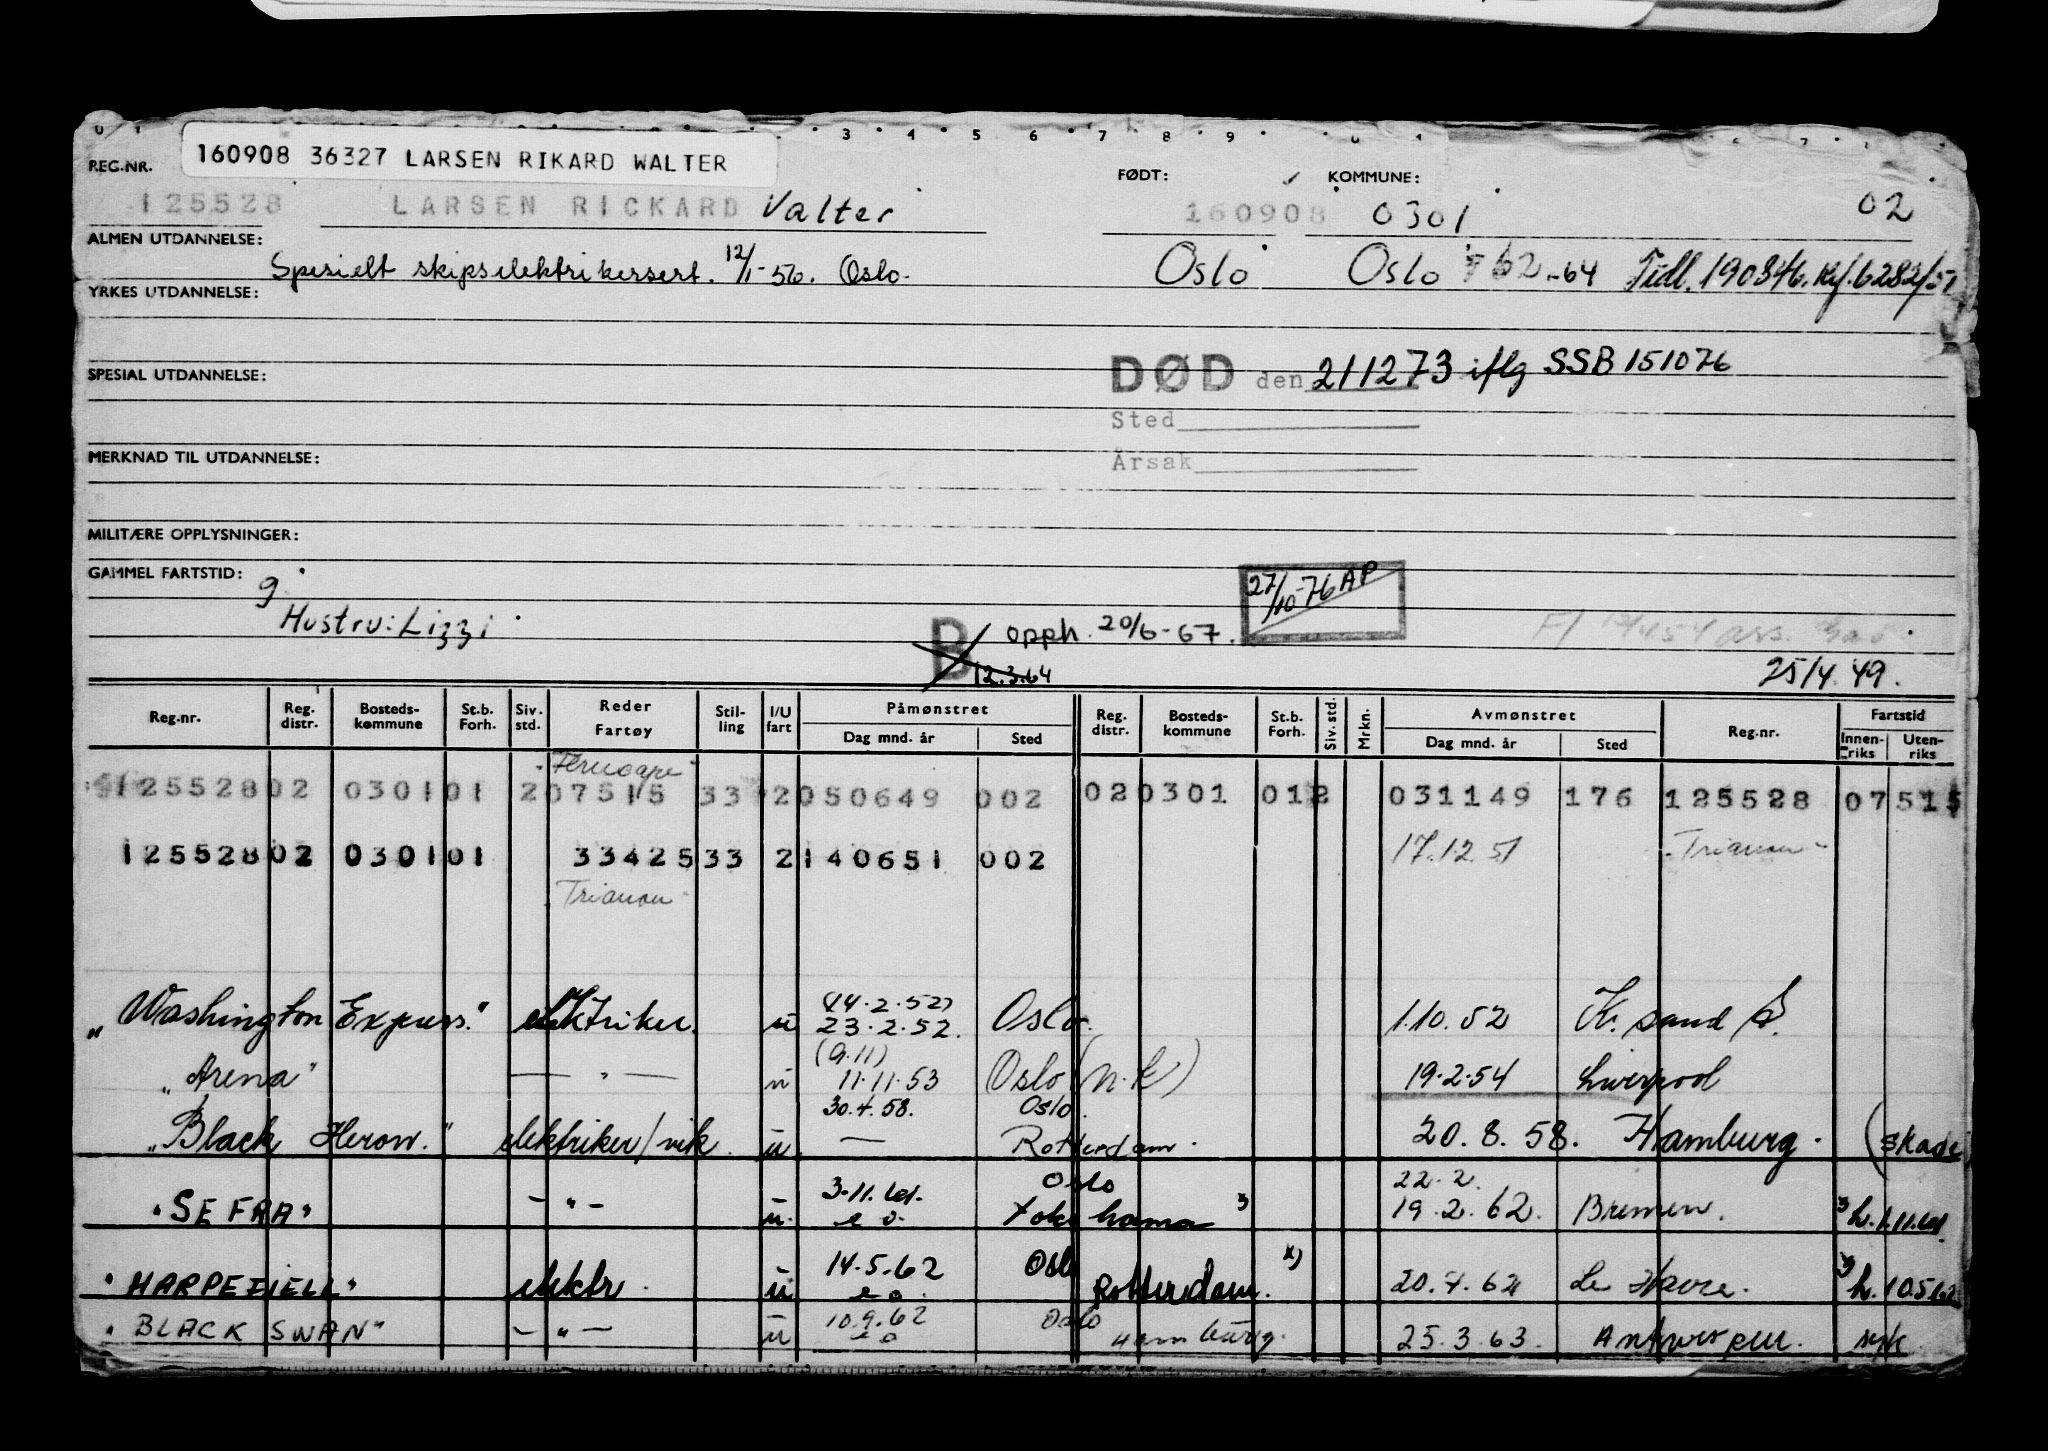 160908 36327 LARSEN RIKARD WALTER
REG.NR. FØDT: KOMMUNE:
125528 LARSEN RICKARD Valter 160908 0301 02
ALMEN UTDANNELSE:
Spesielt skipselektrikersert. 12/1-56. Oslo. Oslo Oslo 62-64 Tidl. 190846.
YRKES UTDANNELSE:
DØD den 211273 iflg SSB 151076
SPESIAL UTDANNELSE:
Sted
MERKNAD TIL UTDANNELSE:
Årsak
MILITÆRE OPPLYSNINGER:
GAMMEL FARTSTID: 9
27/10-76 AP
Hustru: Lizzi
B opph. 20/6-67.
12.3.64 25/4.49.
Reg.nr. Reg. distr. Bosteds-kommune St.b. Forh. Siv. std. Reder Fartøy Stil-ling I/U fart Påmønstret Dag mnd. år Sted Reg. distr. Bosteds-kommune St.b. Forh. Siv. std. Mrkn. Avmønstret Dag mnd. år Sted Reg.nr. Fartstid Innen-riks Uten-riks
125528 02 0301 01 2 07515 33 2 050649 002 02 0301 01 2 031149 176 125528 07515
125528 02 0301 01 33425 33 2 140651 002 17.12.51 Trianon
Trianon
(14.2.52)
"Washington Express." elektriker. u 23.2.52. Oslo. 1.10.52 Kr. sand S.
(9.11)
"Arena" — " — u 11.11.53 Oslo (n.k) 19.2.54 Liverpool
30.4.58. Oslo.
"Black Heron." elektriker/vik. u — Rotterdam. 20.8.58. Hamburg. (skade
3.11.61. Oslo 22.2.
"SEFRA" — " — u. e o. Yokohama 19.2.62. Bremen. h. 1.11.61.
14.5.62 Oslo x)
"HARPEFJELL" elektr. u e o. Rotterdam. 20.7.62 Le Havre. h. 10.5.62
10.9.62 Oslo
"BLACK SWAN" — " — u e o Hamburg. 25.3.63. Antwerpen. syk